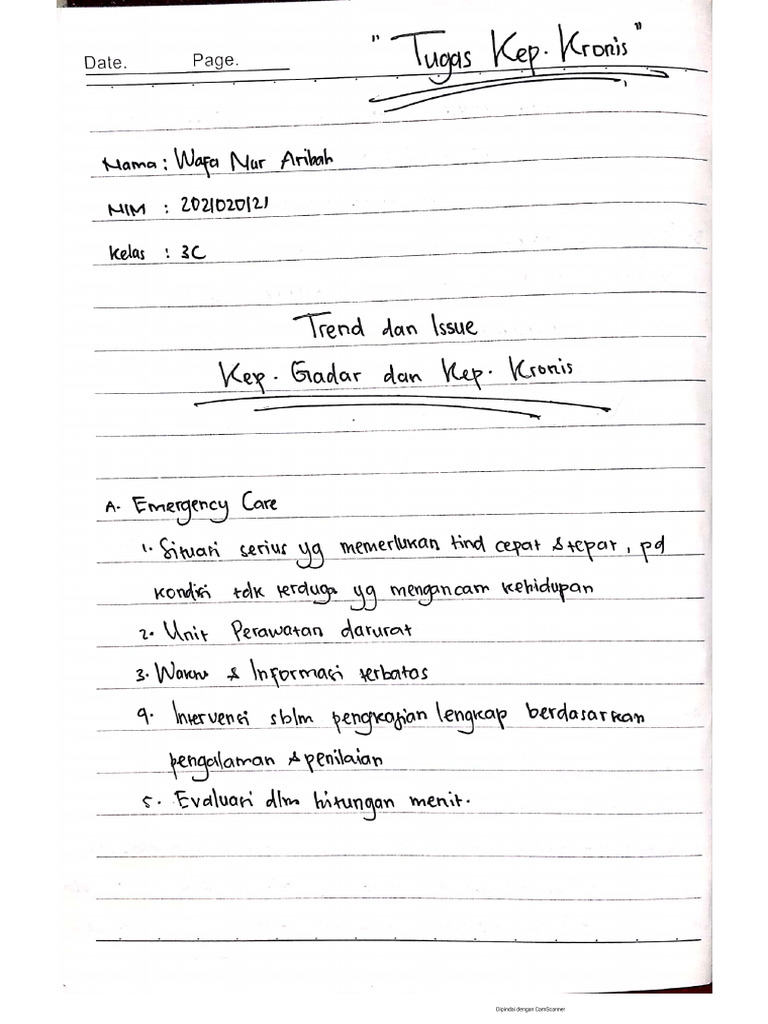 Date. Page. "Tugas Kep. Kronis"
Nama : Wafa Nur Aribah
NIM : 202102012 1
Kelas : 3C
Trend dan Issue
Kep. Gadar dan Kep. Kronis
A. Emergency Care
1. Situasi serius yg memerlukan tind cepat & tepat, pd
kondisi tdk terduga yg mengancam kehidupan
2. Unit Perawatan darurat
3. Waktu & Informasi terbatas
4. Intervensi sblm pengkajian lengkap berdasarkan
pengalaman & penilaian
5. Evaluasi dlm hitungan menit.
Dipindai dengan CamScanner